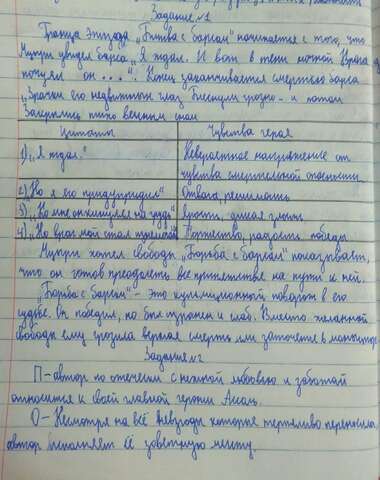 Задание №1
Граница эпизода „Битва с барсом" начинается с того, что
Мцыри увидел барса „Я ждал. И вот в тени ночной Врага
почуял он ...". Конец заканчивается смертью барса
„Зрачки его недвижных глаз Блеснули грозно - и потом
Закрылись тихо вечным сном
Цитаты Чувства героя
1) „Я ждал." Невероятное напряжение от
чувства смертельной опасности
2) „Но я его предупредил" Отвага, решимость
3) „Ко мне он кинулся на грудь" Ярость, дикая злоба
4) „Но враг мой стал изнемогать" Торжество, радость победы
Мцыри хотел свободы. „Борьба с барсом" показывает,
что он готов преодолеть все препятствие на пути к ней.
„Борьба с барсом" - это кульмационной поворот в его
судьбе. Он победил, но был изранен и слаб. Вместо желанной
свободы ему грозила верная смерть или заточение в монастыре
Задание №2
П-автор по отечески с нежной любовью и заботой
относится к своей главной героини Ассоль.
О-Несмотря на всё невзгоды которые терпеливо переносила
автор исполняет её заветную мечту.